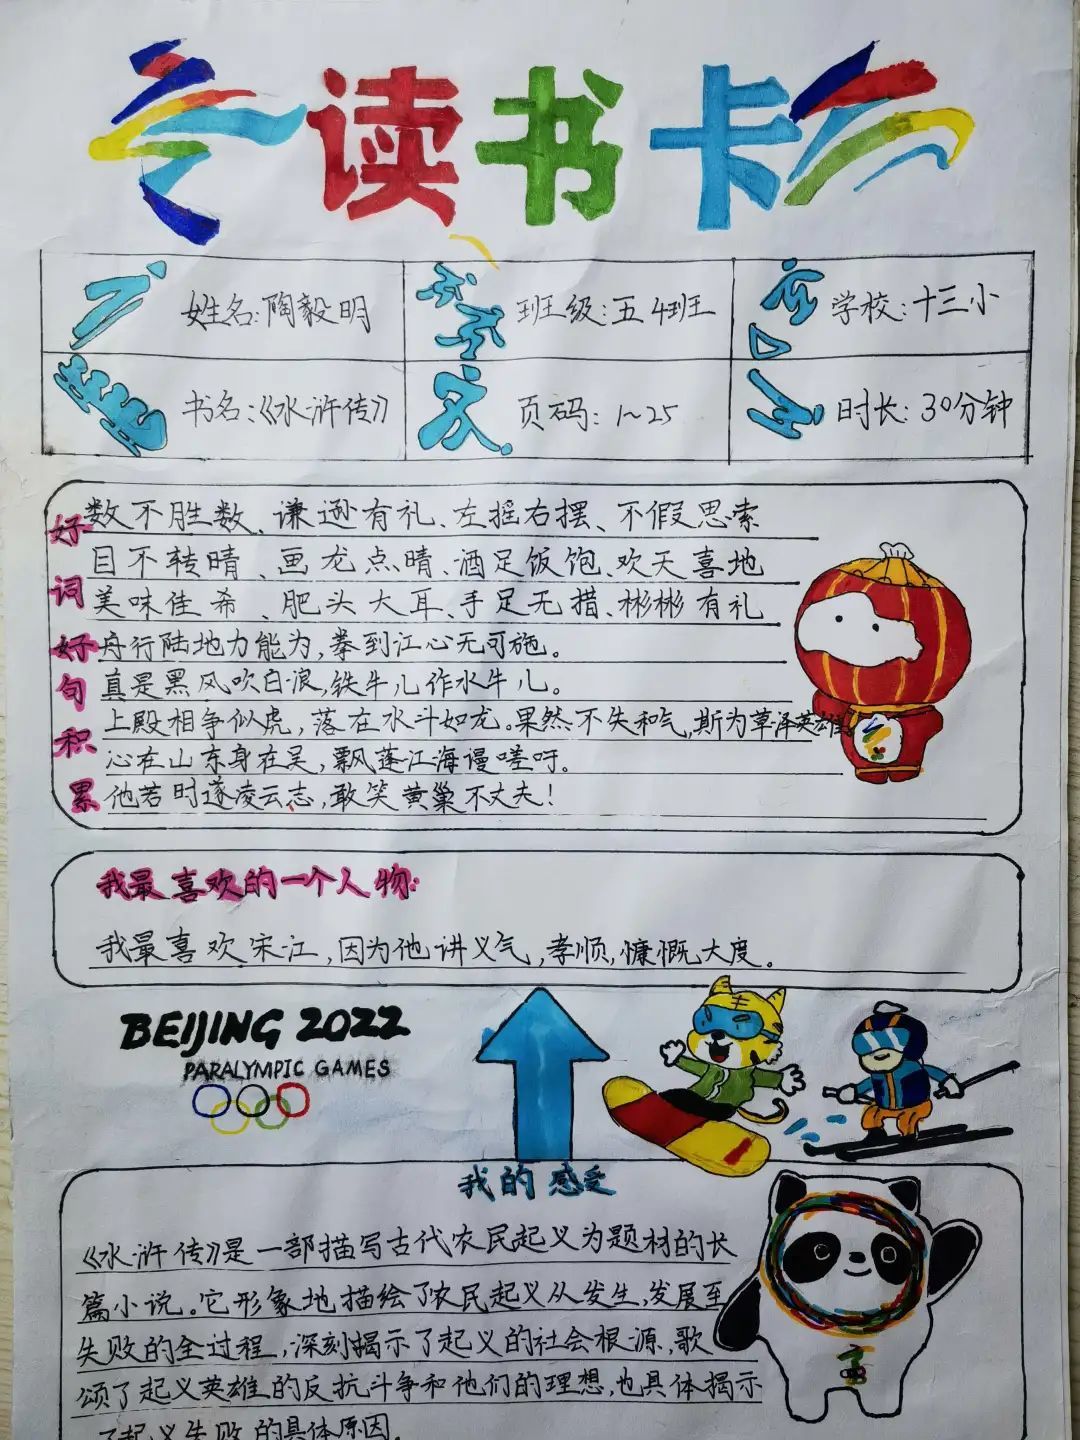 读书卡
姓名:陶毅明
班级:五4班
学校:十三小
书名:《水浒传》
页码:1~25
时长:30分钟
好词好句积累
数不胜数、谦逊有礼、左摇右摆、不假思索
目不转晴、画龙点晴、酒足饭饱、欢天喜地
美味佳希、肥头大耳、手足无措、彬彬有礼
舟行陆地力能为,拳到江心无可施。
真是黑风吹白浪,铁牛儿作水牛儿。
上殿相争似虎,落在水斗如龙。果然不失和气,斯为草泽英雄。
心在山东身在吴,飘蓬江海谩嗟吁。
他若时遂凌云志,敢笑黄巢不丈夫!
我最喜欢的一个人物:
我最喜欢宋江,因为他讲义气,孝顺,慷慨大度。
BEIJING 2022
PARALYMPIC GAMES
我的感受
《水浒传》是一部描写古代农民起义为题材的长
篇小说。它形象地描绘了农民起义从发生,发展至
失败的全过程,深刻揭示了起义的社会根源,歌
颂了起义英雄的反抗斗争和他们的理想,也具体揭示
了起义失败的具体原因。